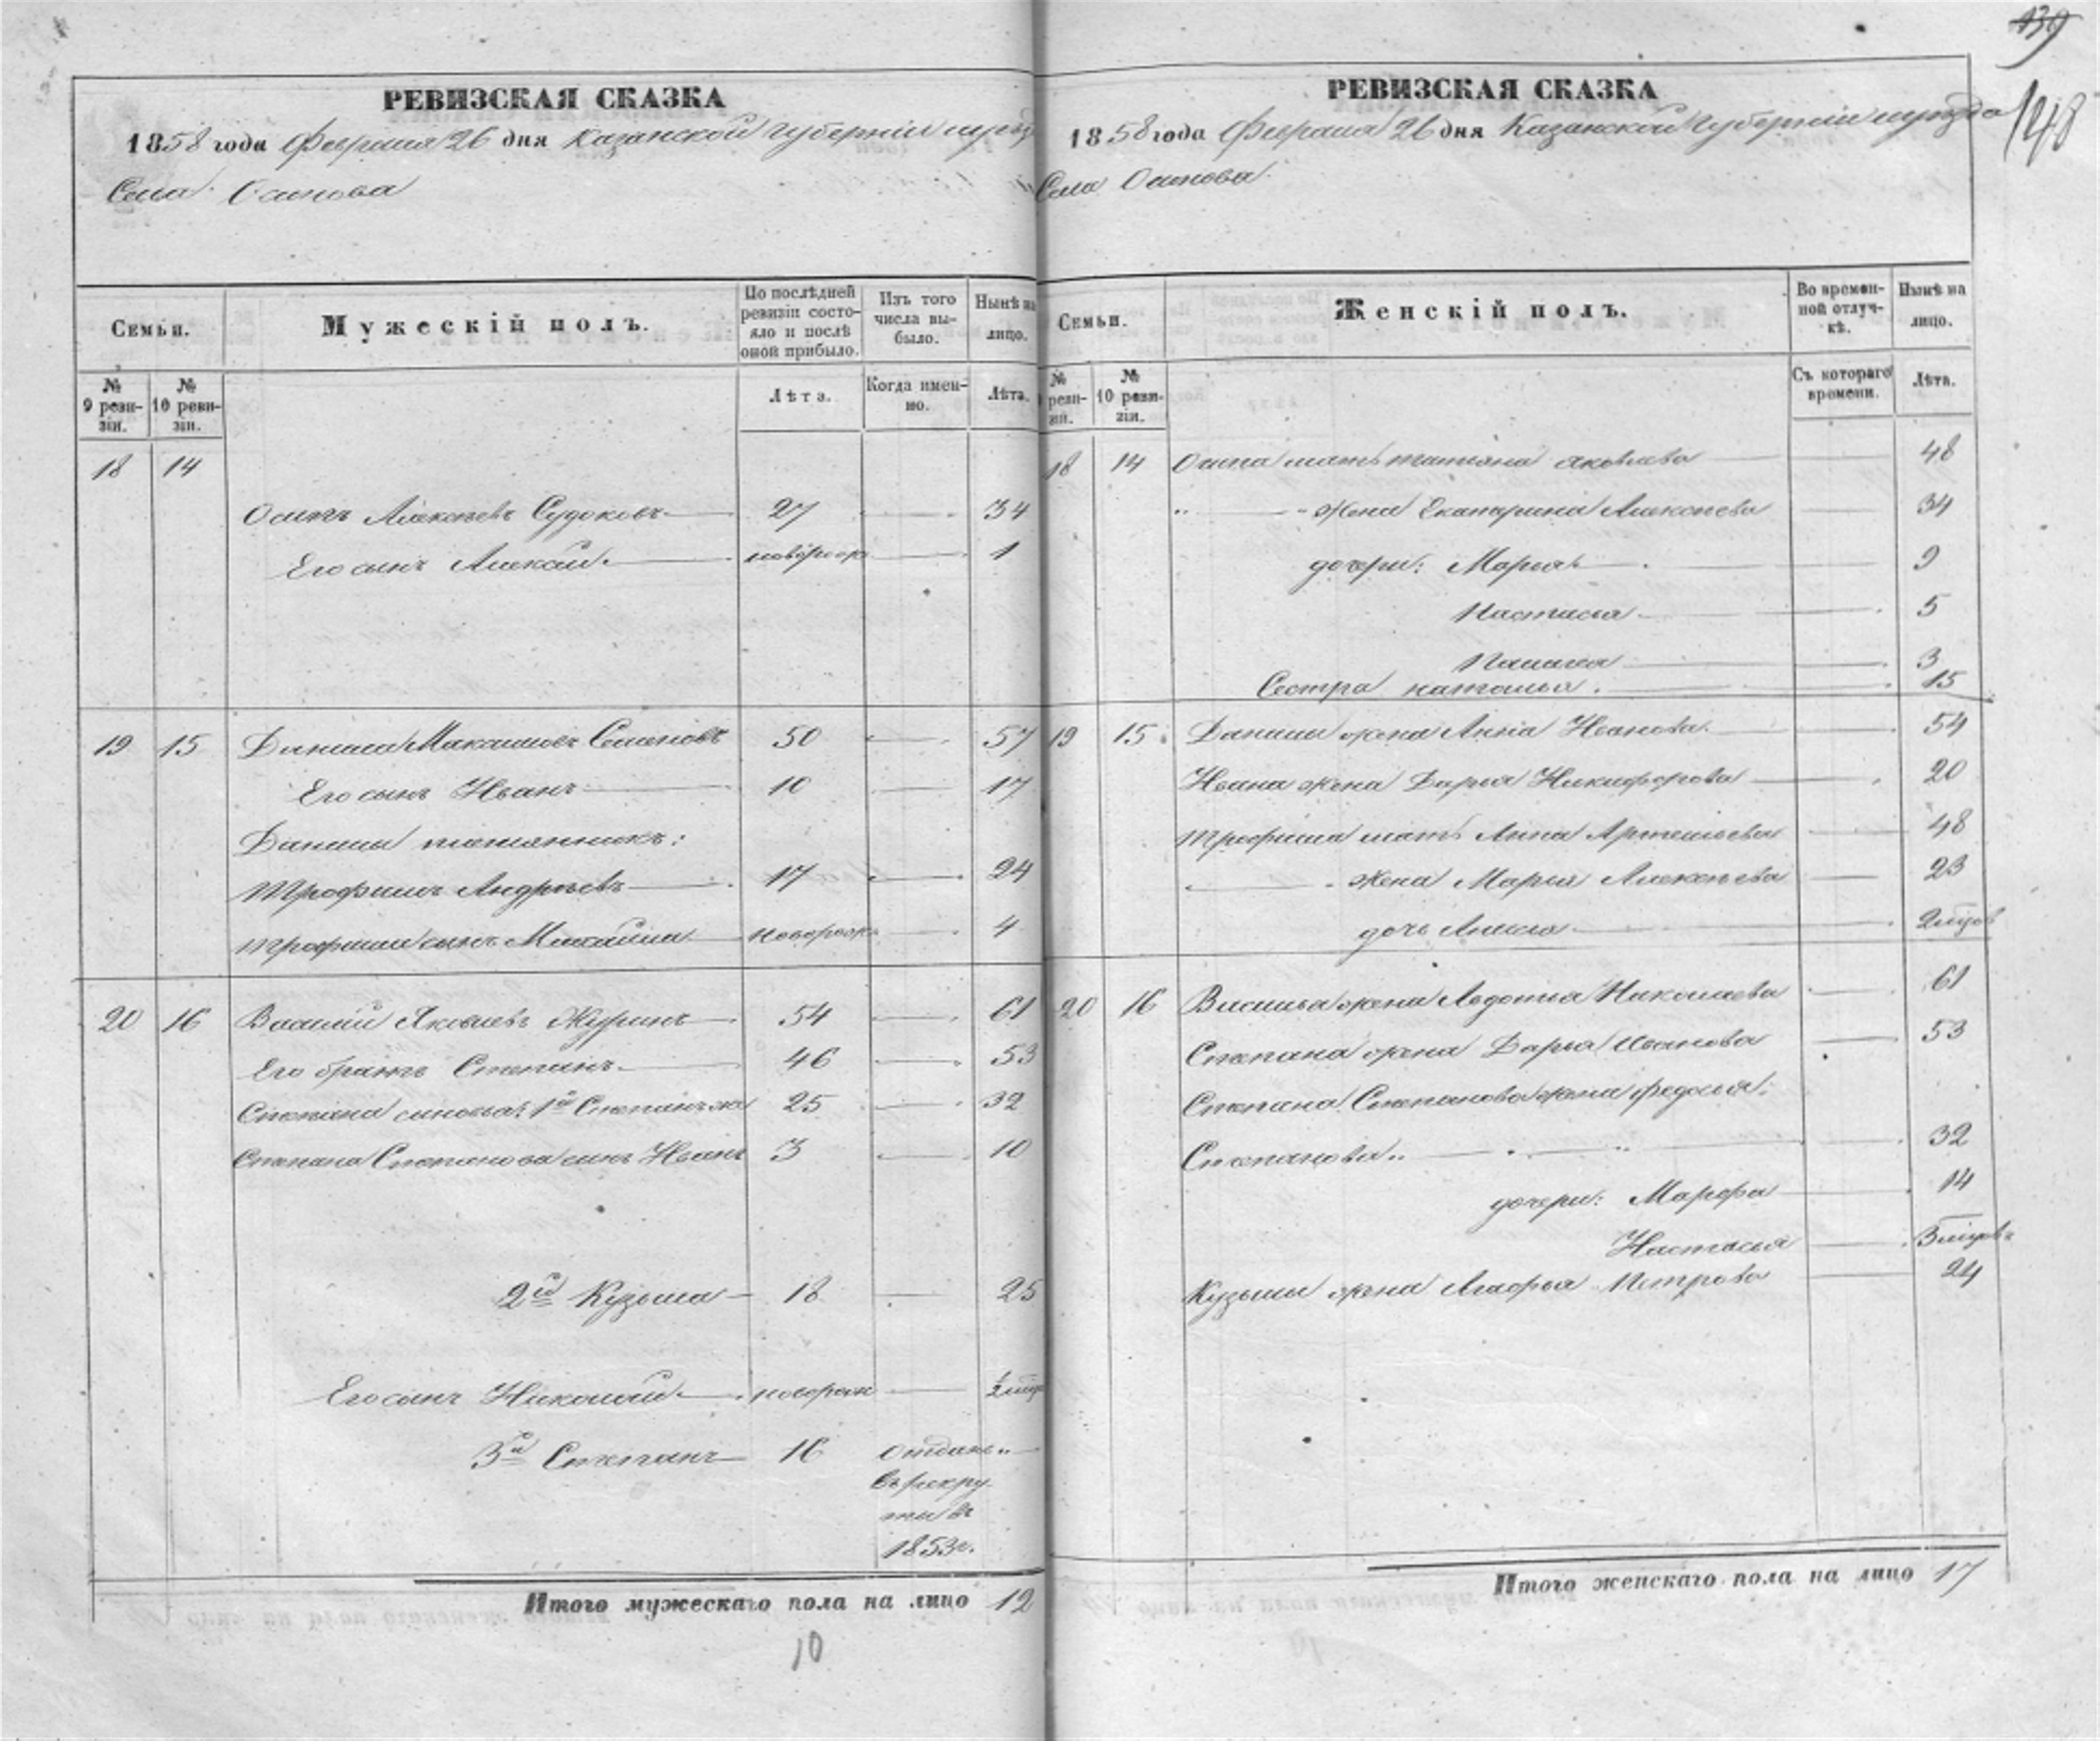 139
148
РЕВИЗСКАЯ СКАЗКА
1858 года Февраля 26 дня Казанской губернии
Села Осинова
Семьи.
Мужескій полъ.
По послѣдней ревизіи состояло и послѣ оной прибыло.
Изъ того числа выбыло.
Нынѣ на лицо.
№ 9 ревизіи.
№ 10 ревизіи.
Лѣта.
Когда именно.
Лѣта.
18 14
Осипъ Алексѣевъ Судоковъ 27 34
Его сынъ Алексѣй новорож 1
19 15 Данила Максимовъ Семеновъ 50 57
Его сынъ Иванъ 10 17
Данилы племянникъ:
Трофимъ Андреевъ 17 24
Трофима сынъ Михайла новорож 4
20 16 Василій Яковлевъ Журинъ 54 61
Его братъ Степанъ 46 53
Степана сыновья: 1й Степанъ 25 32
Степана Степанова сынъ Иванъ 3 10
2й Кузьма 18 25
Его сынъ Николай новорож 1/2
3й Степанъ 16 Отданъ
въ рекру
ты въ
1853г.
Итого мужескаго пола на лицо 12
10
РЕВИЗСКАЯ СКАЗКА
1858 года Февраля 26 дня Казанской губерніи уѣзда
Села Осинова
Семьи.
Женскій полъ.
Во временной отлучкѣ.
Нынѣ на лицо.
№ реви-зіи.
№ 10 ревизіи.
Съ котораго времени.
Лѣта.
18 14 Осипа мать Татьяна Яковлева 48
Жена Екатерина Алексѣева 34
дочери: Марья 9
Настасья 5
3
Сестра Наталья 15
19 15 Данилы жена Анна Иванова 54
Ивана жена Дарья Никифорова 20
Трофима мать Анна Артемьева 48
Жена Марья Алексѣева 23
дочь Анисья
20 16 Василья жена Авдотья Николаева 61
Степана жена Дарья Иванова 53
Степана Степанова жена Федосья
Степанова 32
дочери: Марфа 14
Настасья
Кузьмы жена Агафья Петрова 24
Итого женскаго пола на лицо 17